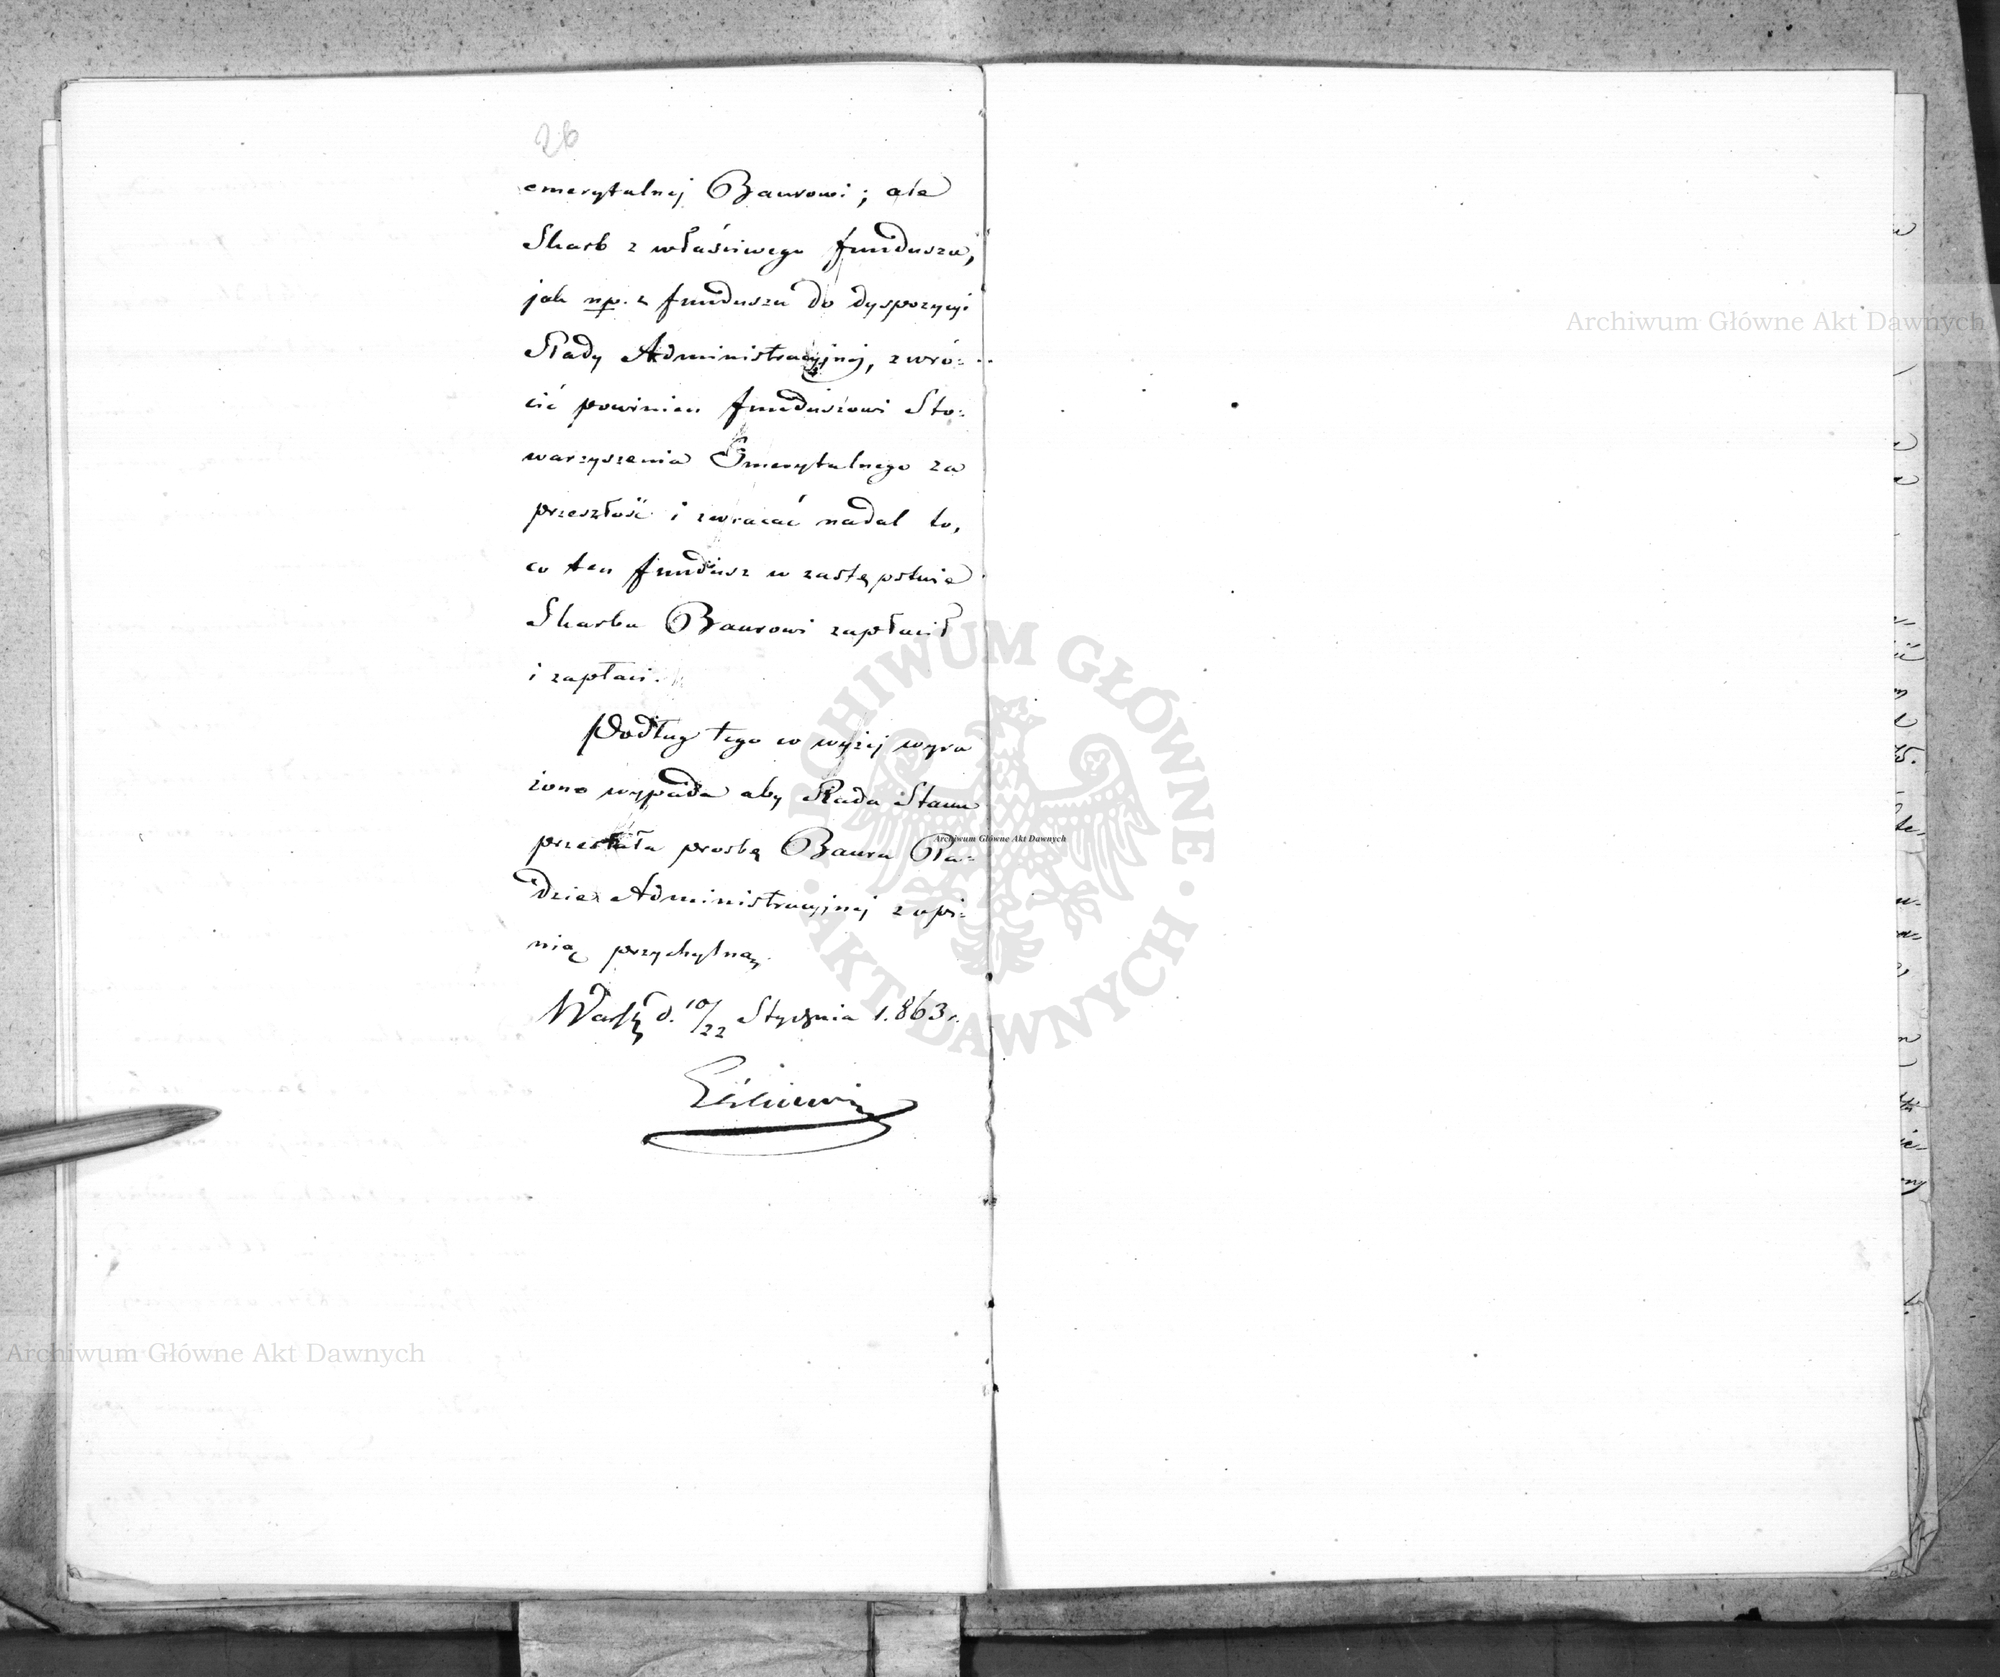 26
emerytalnej Baurowi; ale
Skarb z właściwego funduszu,
jak np. z funduszu do dyspozycji
Rady Administracyjnej, zwró=
cić powinien funduszowi Sto=
warzyszenia Emerytalnego za
przeszłość i zwracać nadal to,
co ten fundusz w zastępstwie
Skarbu Baurowi zapłacił
i zapłaci.
Podług tego co wyżej wyra
żono wypada aby Rada Stanu
przesłała prośbę Baura Ra=
dzie Administracyjnej z opi=
nią przychylną.
d. 10/22 Stycznia 1.863 r.
Archiwum Główne Akt Dawnych
Archiwum Główne Akt Dawnych
Archiwum Główne Akt Dawnych
ARCHIWUM GŁÓWNE AKT DAWNYCH